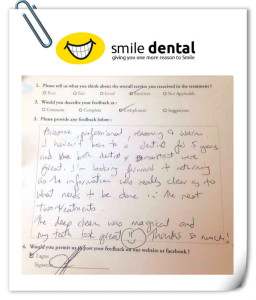 smile dental
giving you one more reason to Smile
1. Please tell us what you think about the overall service you received in the treatment ?
Poor Fair Good Excellent Not Applicable
2. Would you describe your feedback as :
Comment Complain Compliment Suggestion
3. Please provide any feedback below :
Awesome, professional, reassuring & warm
I haven't been to a dentist for 5 years
and the both dentist & assistant were
great. I'm looking forward to returning
as the information was really clear as to
what needs to be done in the next
two treatments.
The deep clean was magical and
my teeth look great!! Thanks so much!
4. Would you permit us to post your feedback on our website or facebook !
I agree
Signed